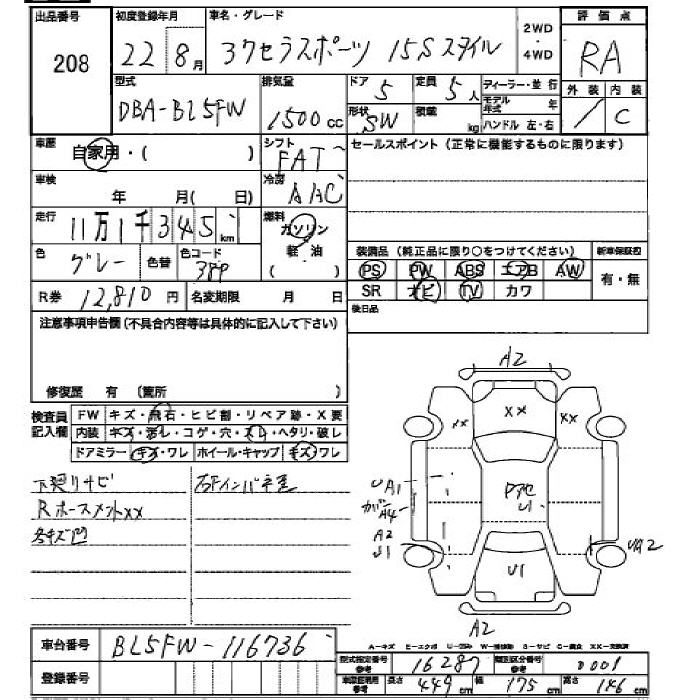 出品番号 初度登録年月 車名・グレード 2WD・4WD 評価点
208 22 8月 アクセラスポーツ 15Sスタイル RA
型式 排気量 ドア 定員 ディーラー・並行 外装 内装
DBA-BL5FW 1500cc 5 5人 モデル年式 年 / C
形状 SW 積載 kg ハンドル 左・右
車歴 自家用・( ) シフト FAT セールスポイント(正常に機能するものに限ります)
車検 年 月( 日) 冷房 AAC
走行 11万1千345km 燃料 ガソリン 軽・油
色 グレー 色替 色コード 装備品(純正品に限り○をつけてください) 新車保証書
PS PW ABS エアB AW 有・無
R券 12,810円 名変期限 月 日 SR ナビ TV カワ
注意事項申告欄(不具合内容等は具体的に記入して下さい) 後日品
修復歴 有 (箇所 )
検査員記入欄 FW キズ・飛石・ヒビ割・リペア跡・X要
内装 キズ・汚レ・コゲ・穴・スレ・ヘタリ・破レ
ドアミラー キズ・ワレ ホイール・キャップ キズ・ワレ
下廻りサビ
Rホースメントxx
各キズ凹
A2
xx xx xx
UA1
ガバー A4
A2
U1
U1
U1
UA2
A2
A-キズ E-エクボ U-凹み W-補修跡 S-サビ C-腐食 XX-交換済
車台番号 BL5FW-116736 型式指定番号 参考 16287 類別区分番号 参考 0001
登録番号 車庫証明用 参考 長さ 449cm 幅 175cm 高さ 146cm